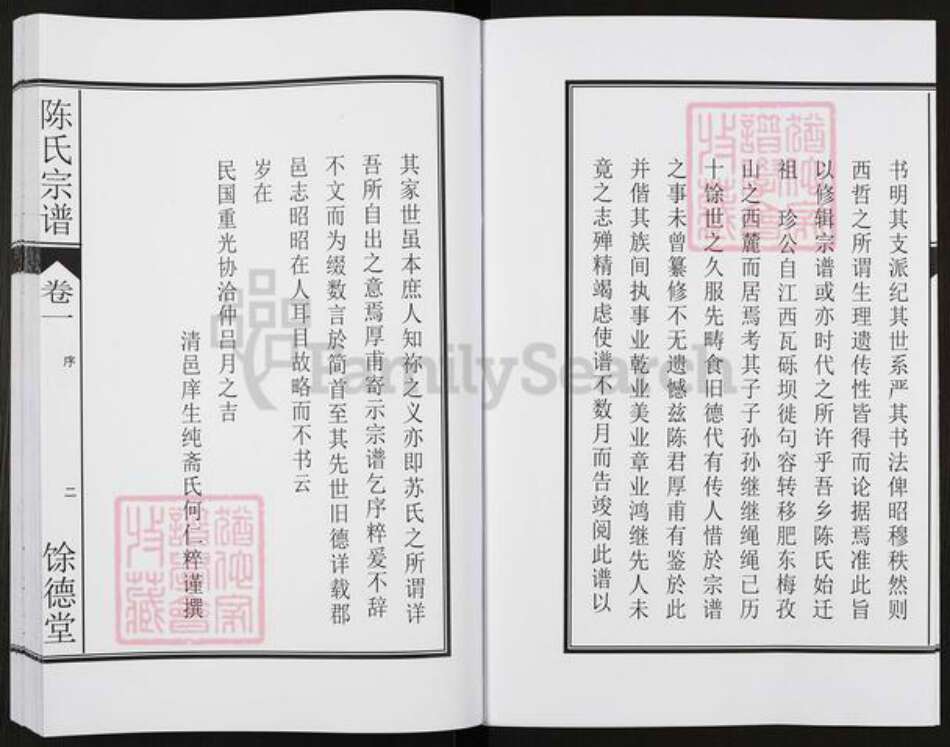 书明其支派纪其世系严其书法俾昭穆秩然则
西哲之所谓生理遗传性皆得而论据焉准此旨
以修辑宗谱或亦时代之所许乎吾乡陈氏始迁
祖　珍公自江西瓦砾坝徙句容转移肥东梅孜
山之西麓而居焉考其子子孙孙继继绳绳已历
十馀世之久服先畴食旧德代有传人惜於宗谱
之事未曾纂修不无遗憾兹陈君厚甫有鉴於此
并偕其族间执事业乾业美业章业鸿继先人未
竟之志殚精竭虑使谱不数月而告竣阅此谱以
其家世虽本庶人知祢之义亦即苏氏之所谓详
吾所自出之意焉厚甫寄示宗谱乞序粹爰不辞
不文而为缀数言於简首至其先世旧德详载郡
邑志昭昭在人耳目故略而不书云
岁在
民国重光协洽仲吕月之吉
清邑庠生纯斋氏何仁粹谨撰
陈氏宗谱
卷一
序
二
馀德堂
FamilySearch